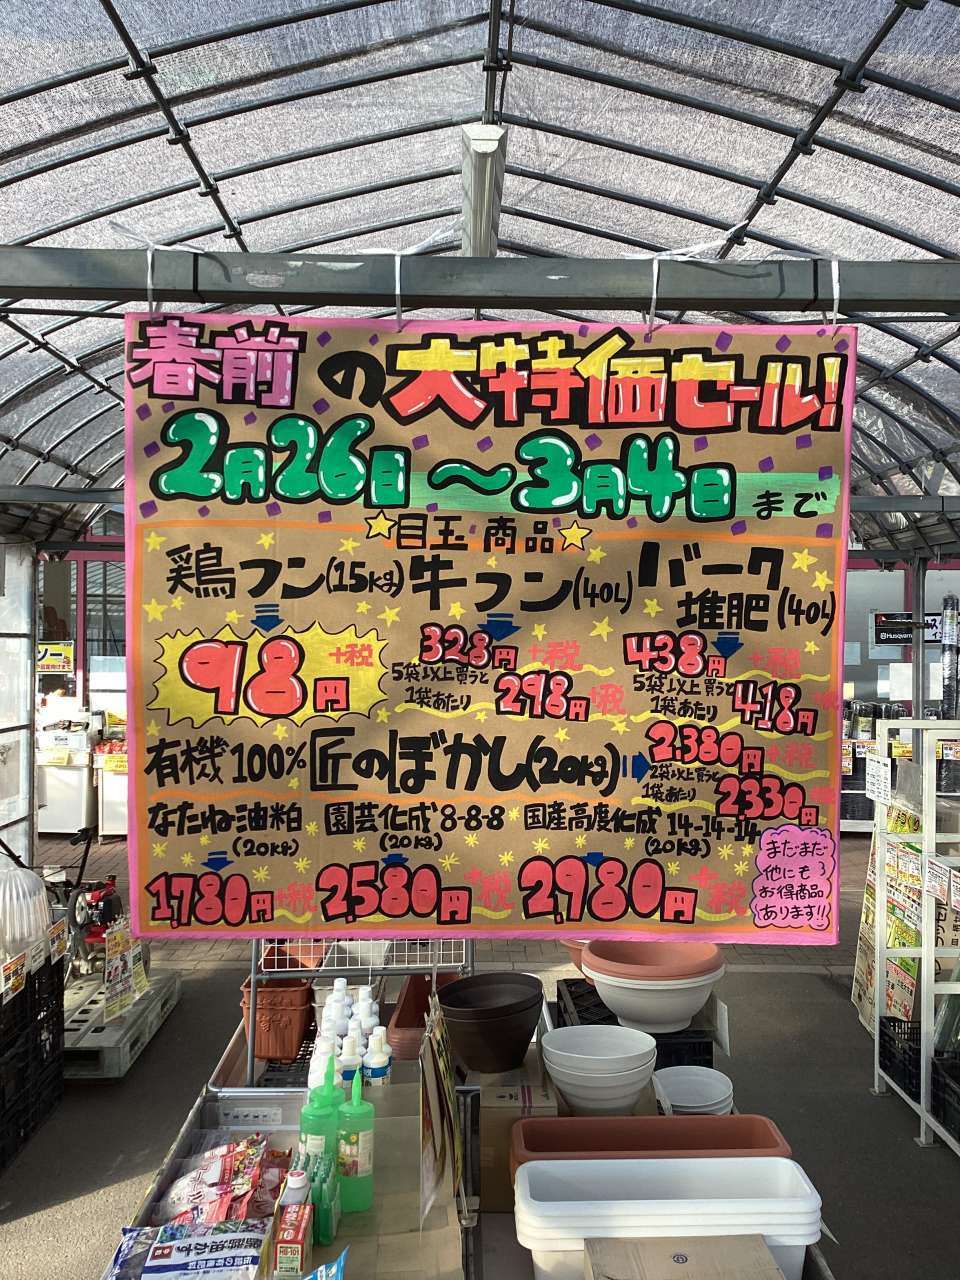 春前の大特価セール!
2月26日～3月4日まで
☆目玉商品☆
鶏フン(15kg)
98円+税
牛フン(40L)
328円+税
5袋以上買うと
1袋あたり298円+税
バーク
堆肥(40L)
438円+税
5袋以上買うと
1袋あたり418円+税
有機100%匠のぼかし(20kg)
2,380円+税
2袋以上買うと
1袋あたり2330円+税
なたね油粕
(20kg)
1,780円+税
園芸化成8-8-8
(20kg)
2,580円+税
国産高度化成14-14-14
(20kg)
2,980円+税
まだまだ
他にも
お得商品
あります!!
Husqvarna
HB-101